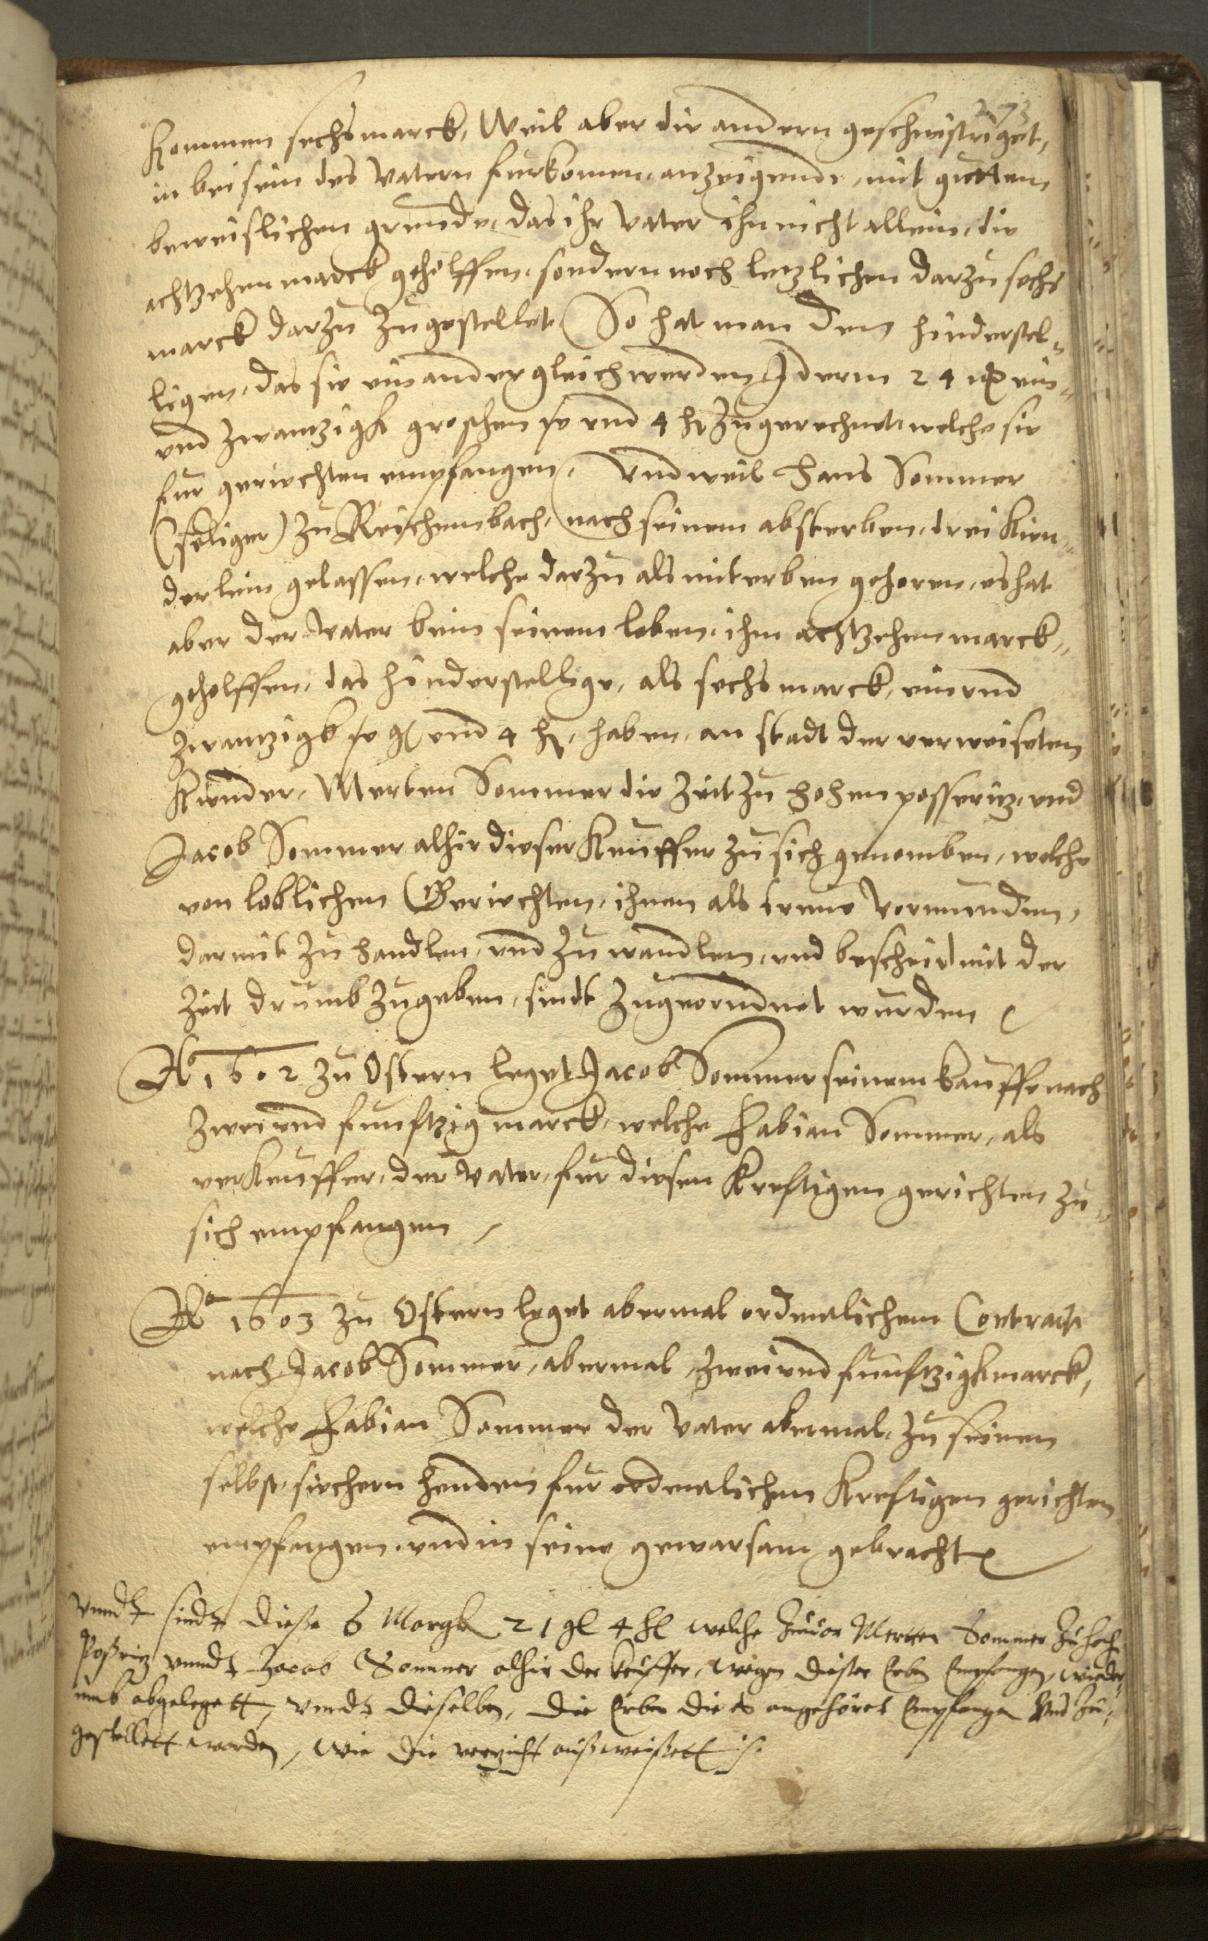 273
kommen sechs marck, Weil aber die andern geschwistriget,
in bei sein des Vatern furkomen, anzeigende, mit gutten,
beweislichen grunde, das ihr Vater ihn nicht allein, die
achtzehen marck geholffen, sondern noch letzlichen darzu sechs
marck darzu zugestellet So hat man dem hinderstel-
ligen, das sie einander gleich werden Jderm 24 ein-
und zwantzigk groschen und 4 hl zugerechnet welche sie
fur gerichten empfangen, Und weil Hans Sommer
(seliger) zu Reichenbach, nach seinem absterben, drei Kin-
derlein gelassen, welche darzu als mit erben gehoren, es hat
aber der Vater beim seinem leben, ihm achtzehen marck,
geholffen, das hinderstellige, als sechs marck, ein und
zwantzigk gl und 4 hl, haben, an stadt der verweiseten
Kinder, Merten Sommer die Zeit zu Hohen posseritz, und
Jacob Sommer alhie dieser Keuffer zu sich genomben, welche
von loblichen Gerichten, ihnen als treue Vormunden,
darmit zu handlen, und zu wandlen, und bescheid mit der
Zeit drumb zugeben, sindt zugeorndnet wurden
Ao 1602 zu Ostern leget Jacob Sommer seinem kauffe nach
zwei und funftzig marck, welche Fabian Sommer, als
verkeuffer, der Vater, fur diesen Kreftigen gerichten zu-
sich empfangen
Ao 1603 zu Ostern leget abermal ordenlichem Contract
nach Jacob Sommer, abermal, zwei und funftzigk marck,
welche Fabian Sommer der Vater abermal, zu seinen
selbst, sichern henden fur ordenlichen Kreftigen gerichten
empfangen, und in seine gewarsam gebracht
Vnndt sindt diese 6 Margk 21 gl 4 hl welche zuuor Merten Sommer zu hoch
Poßritz vnndt Jacob Sommer alhie der keuffer, wegen dieser Erben Empfangen, wieder-
umb abgelegett, vnndt dieselben, die Erben die es angehöret Empfangen Vnd zu-
gestellett worden, wie die verzicht außweißett